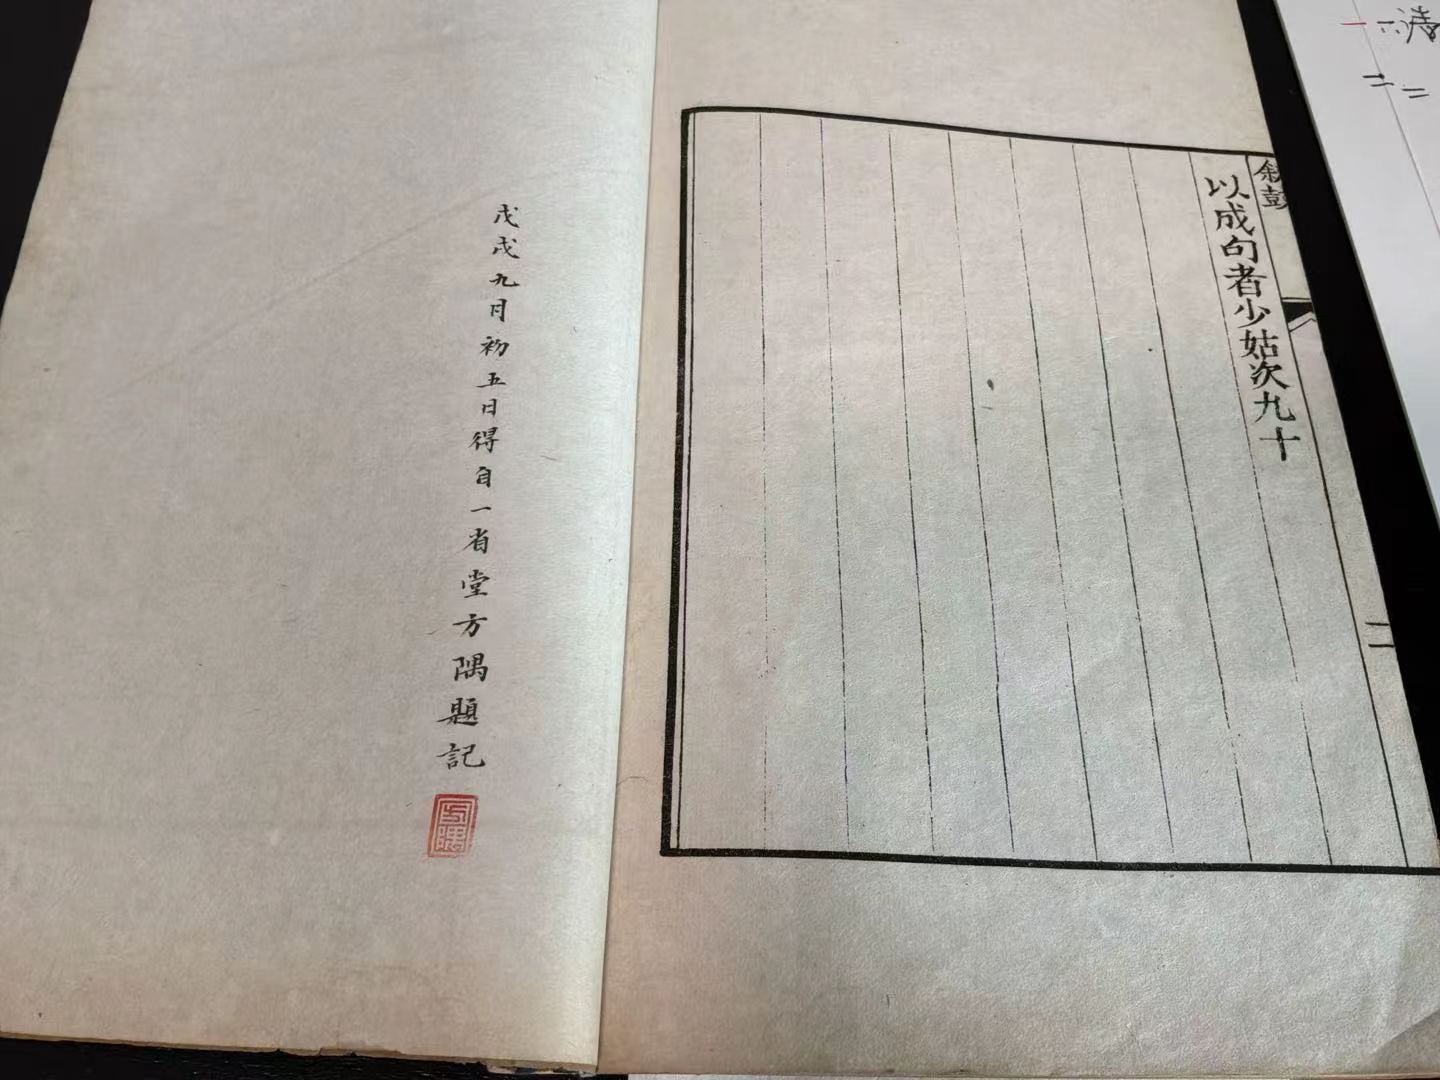 叙彭
以成句者少姑次九十
二
戊戌九月初五日得自一省堂方隅題記
方隅
一 六
二 二